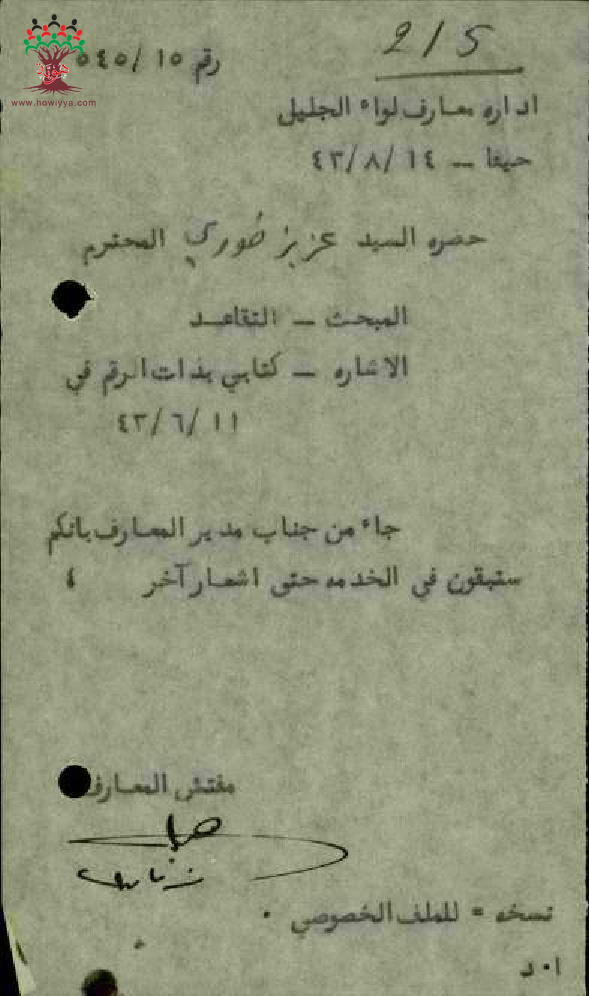 2/5
رقم ١٥/٥٤٥
www.howiyya.com
اداره معارف لواء الجليل
حيفا – ٤٣/٨/١٤
حضره السيد عزيز خوري المحترم
المبحث – التقاعد
الاشاره – كتابي بذات الرقم في
٤٣/٦/١١
جاء من جناب مدير المعارف بانكم
ستبقون في الخدمه حتى اشعار آخر ،
مفتش المعارف
نسخه = للملف الخصوصي .
ا٠د